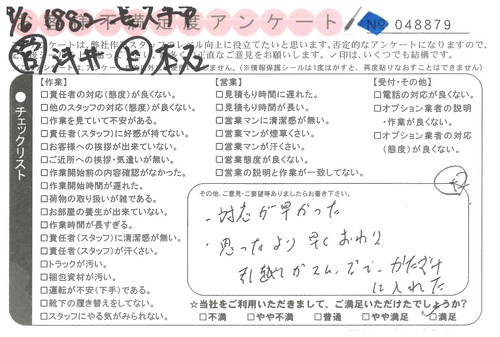 不満足度アンケート No 048879
アンケートは、弊社作業スタッフのレベル向上に役立てたいと思います。否定的なアンケートになりますので、
正直なご意見をお願いします。✓印は、いくつでも結構です。
(※情報保護シールは1度はがすと、再度貼りなおすことはできません)
チェックリスト
【作業】
□責任者の対応(態度)が良くない。
□他のスタッフの対応(態度)が良くない。
□作業を見ていて不安がある。
□責任者(スタッフ)に好感が持てない。
□お客様への挨拶が出来ていない。
□ご近所への挨拶・気遣いが無い。
□作業開始前の内容確認がなかった。
□作業開始時間が遅れた。
□荷物の取り扱いが雑である。
□お部屋の養生が出来ていない。
□作業時間が長すぎる。
□責任者(スタッフ)に清潔感が無い。
□責任者(スタッフ)が汗くさい。
□トラックが汚い。
□梱包資材が汚い。
□運転が不安(下手)である。
□靴下の履き替えをしてない。
□スタッフにやる気がみられない。
【営業】
□見積もり時間に遅れた。
□見積もり時間が長い。
□営業マンに清潔感が無い。
□営業マンが煙草くさい。
□営業マンが汗くさい。
□営業態度が良くない。
□営業の説明と作業が一致してない。
【受付・その他】
□電話の対応が良くない。
□オプション業者の説明
・作業が良くない。
□オプション業者の対応
(態度)が良くない。
その他、ご意見・ご要望等ありましたらお書き下さい。
・対応が早かった
・思ったより早くおわり
引越しがスムーズで、かたづけ
に入れた
☆当社をご利用いただきまして、ご満足いただけたでしょうか?
□不満 □やや不満 □普通 □やや満足 ☑満足